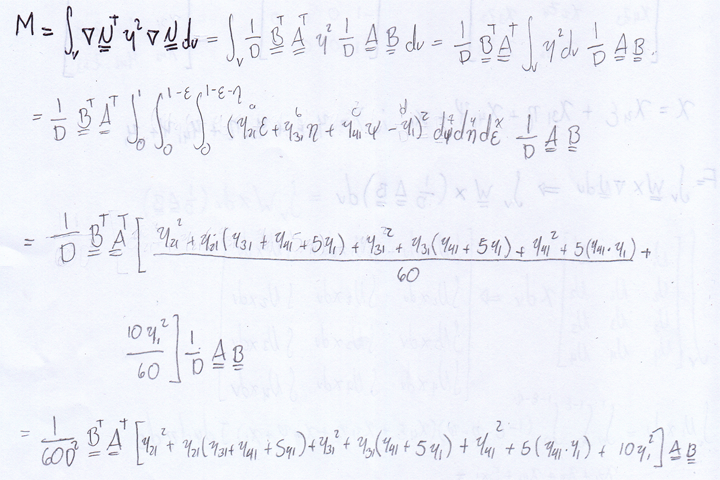 M = ∫_v ∇N̳ᵀ y² ∇N̳ dv = ∫_v 1/D B̳ᵀ A̳ᵀ y² 1/D A̳ B̳ dv = 1/D B̳ᵀ A̳ᵀ ∫_v y² dv 1/D A̳ B̳.
= 1/D B̳ᵀ A̳ᵀ ∫₀¹ ∫₀^{1-ε} ∫₀^{1-ε-η} (y₂₁ε + y₃₁η + y₄₁ψ - y₁)² dψ dη dε 1/D A̳ B̳
= 1/D B̳ᵀ A̳ᵀ [ y₂₁² + y₂₁(y₃₁ + y₄₁ + 5y₁) + y₃₁² + y₃₁(y₄₁ + 5y₁) + y₄₁² + 5(y₄₁·y₁) +
60
10y₁²/60 ] 1/D A̳ B̳
= 1/60D² B̳ᵀ A̳ᵀ [ y₂₁² + y₂₁(y₃₁ + y₄₁ + 5y₁) + y₃₁² + y₃₁(y₄₁ + 5y₁) + y₄₁² + 5(y₄₁·y₁) + 10y₁² ] A̳ B̳